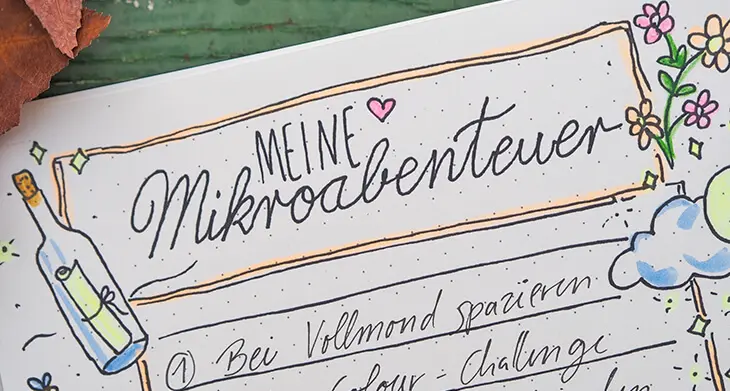 MEINE
Mikroabenteuer
① Bei Vollmond spazieren
Colour - Challenge